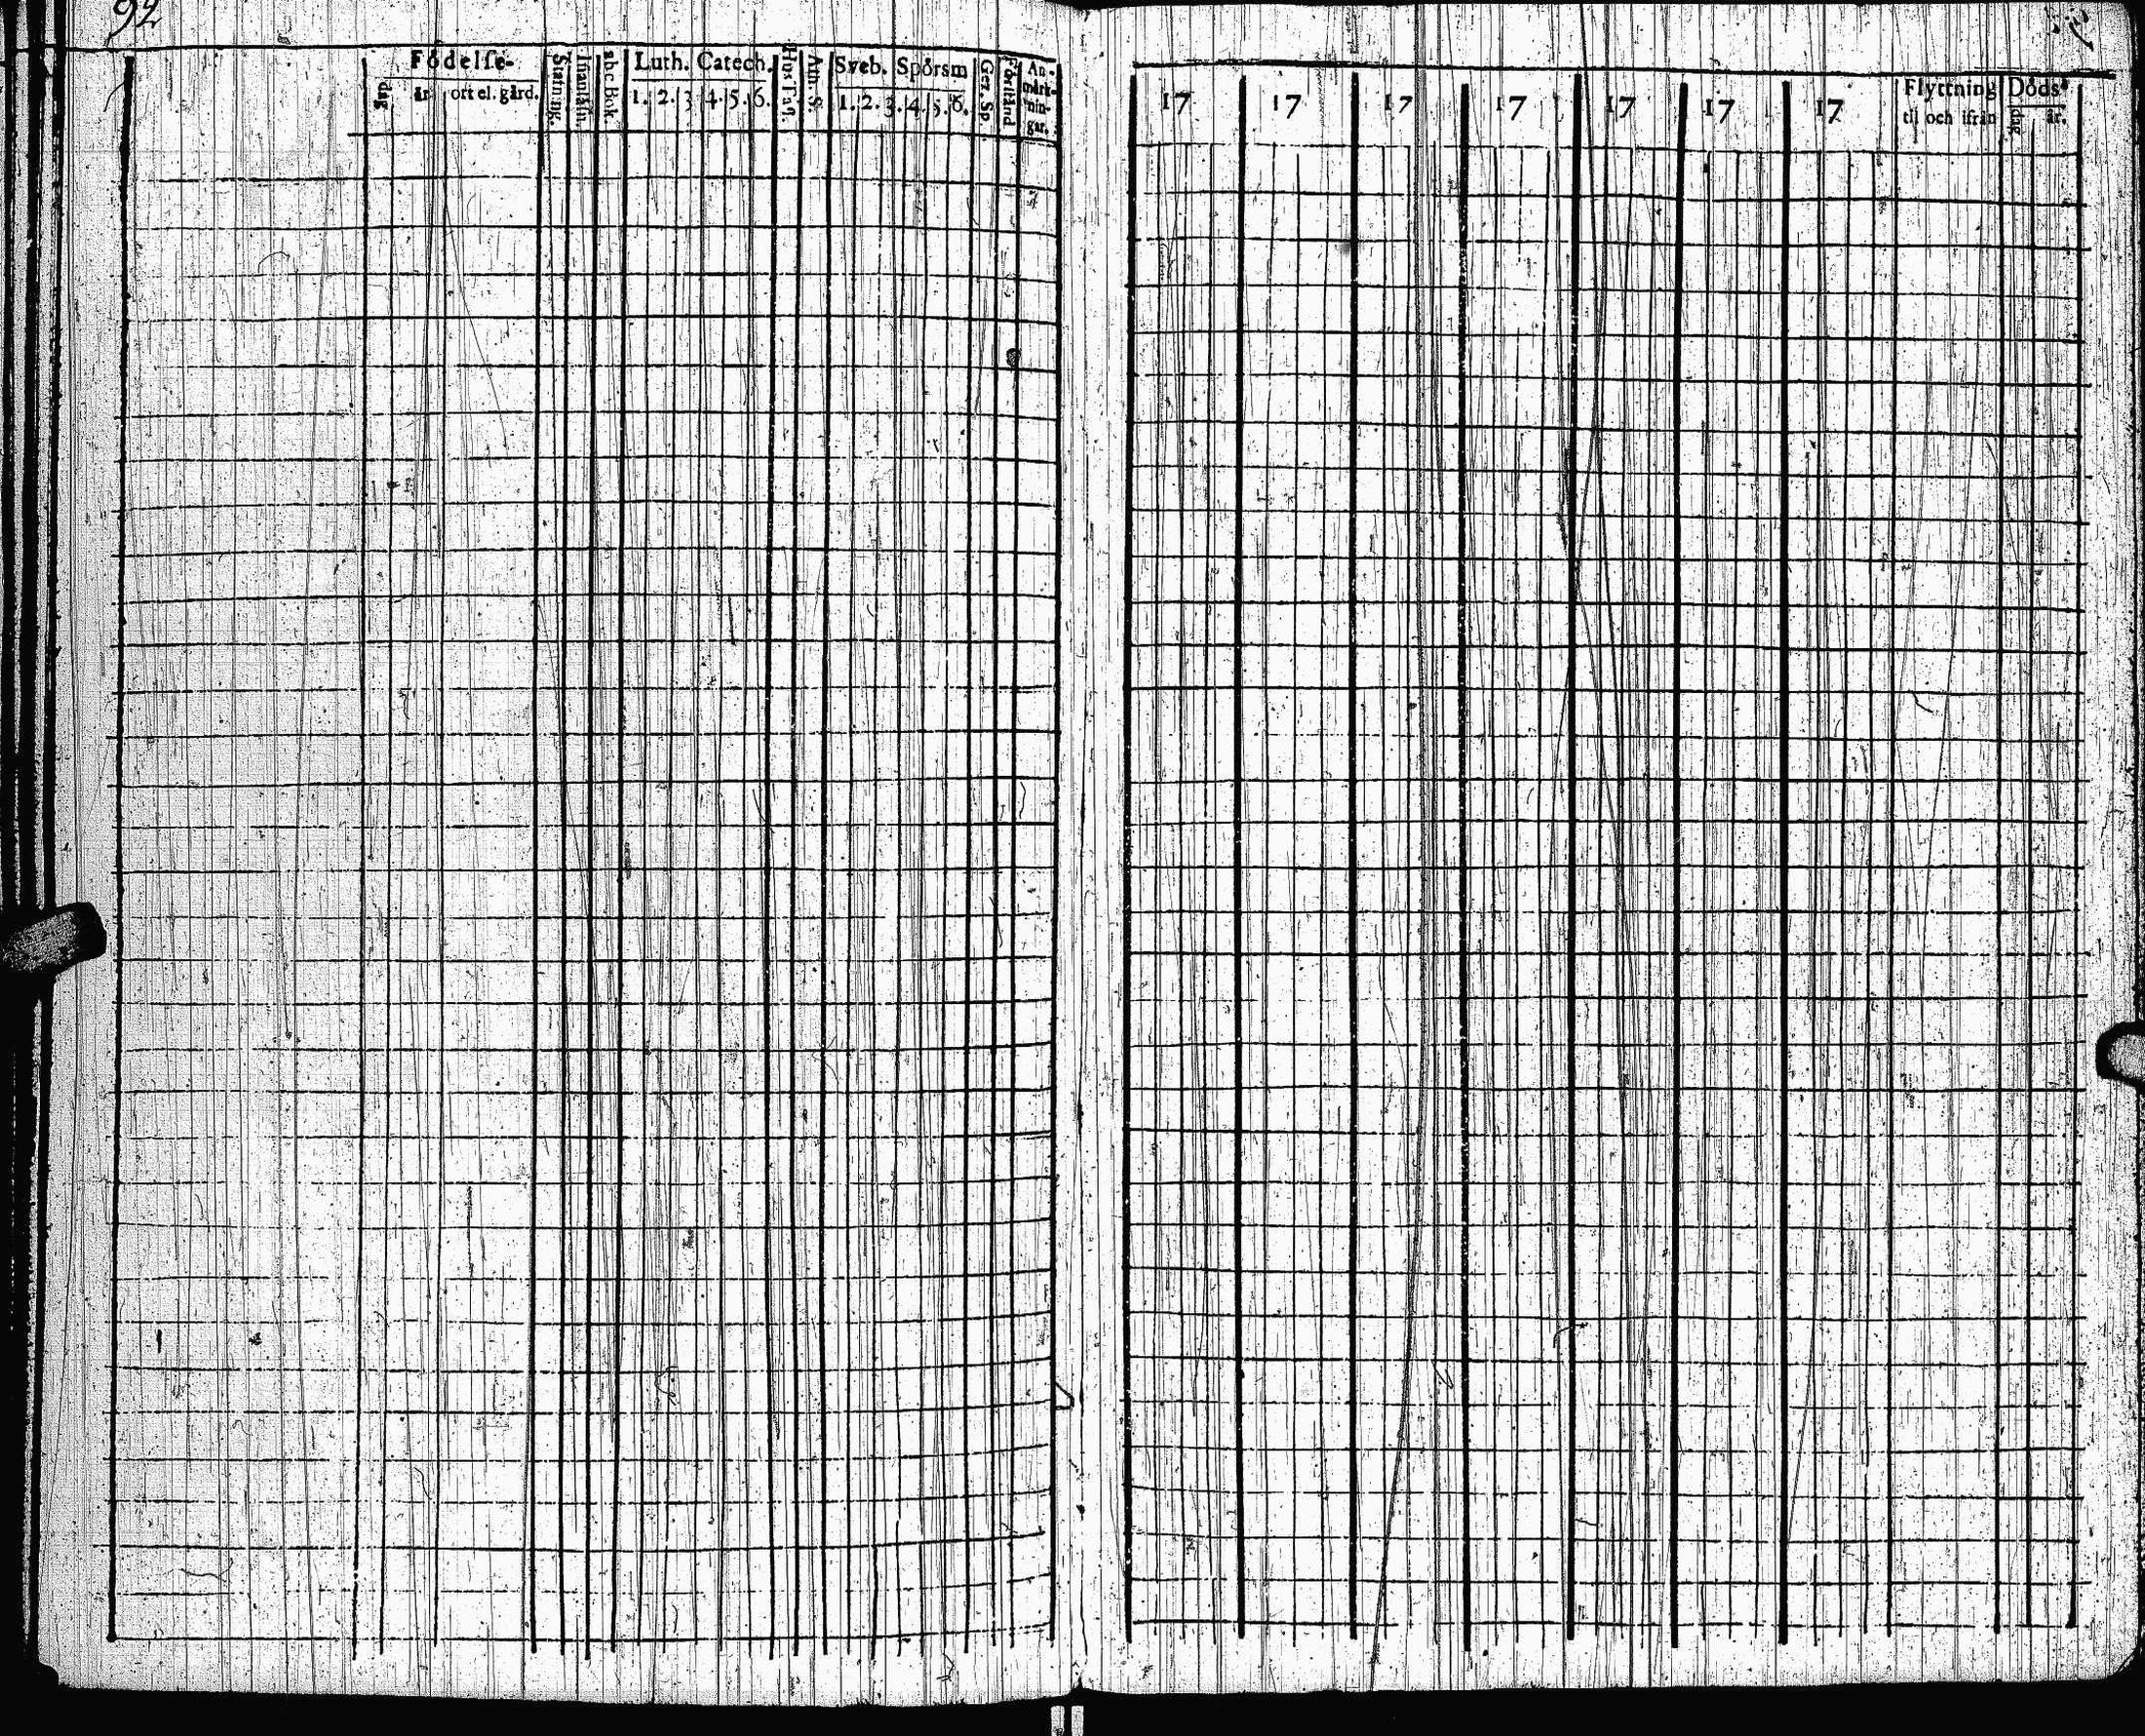 92
Födelse-
dag
år
ort el. gård.
Innanläsn.
abc Bok.
Luth. Catech.
1. 2. 3 4. 5. 6.
Hus Tafl.
Ath. S.
Sveb. Spörsm
1. 2. 3. 4. 5. 6.
Ger. Sp.
Förstånd
An-
märk-
nin-
gar.
17 17 17 17 17 17 17
Flyttning
til och ifrån
Döds-
dag
år.